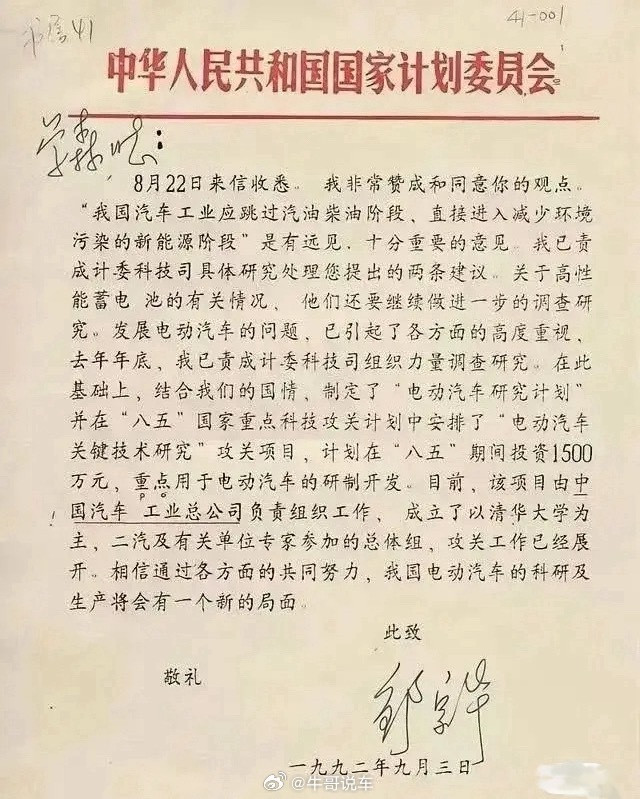 书信41
41-001
中华人民共和国国家计划委员会
学森同志：
8月22日来信收悉。我非常赞成和同意你的观点。
“我国汽车工业应跳过汽油柴油阶段、直接进入减少环境
污染的新能源阶段”是有远见、十分重要的意见。我已责
成计委科技司具体研究处理您提出的两条建议。关于高性
能蓄电 池的有关情况、他们还要继续做进一步的调查研
究。发展电动汽车的问题，已引起了各方面的高度重视，
去年年底，我已责成计委科技司组织力量调查研究。在此
基础上，结合我们的国情，制定了“电动汽车研究计划”
并在“八五”国家重点科技攻关计划中安排了“电动汽车
关键技术研究”攻关项目，计划在“八五”期间投资1500
万元，重点用于电动汽车的研制开发。目前，该项目由中
国汽车 工业总公司负责组织工作，成立了以清华大学为
主、二汽及有关单位专家参加的总体组，攻关工作已经展
开。相信通过各方面的共同努力，我国电动汽车的科研及
生产将会有一个新的局面。
此致
敬礼
邹家华
一九九二年九月三日
@牛哥说车